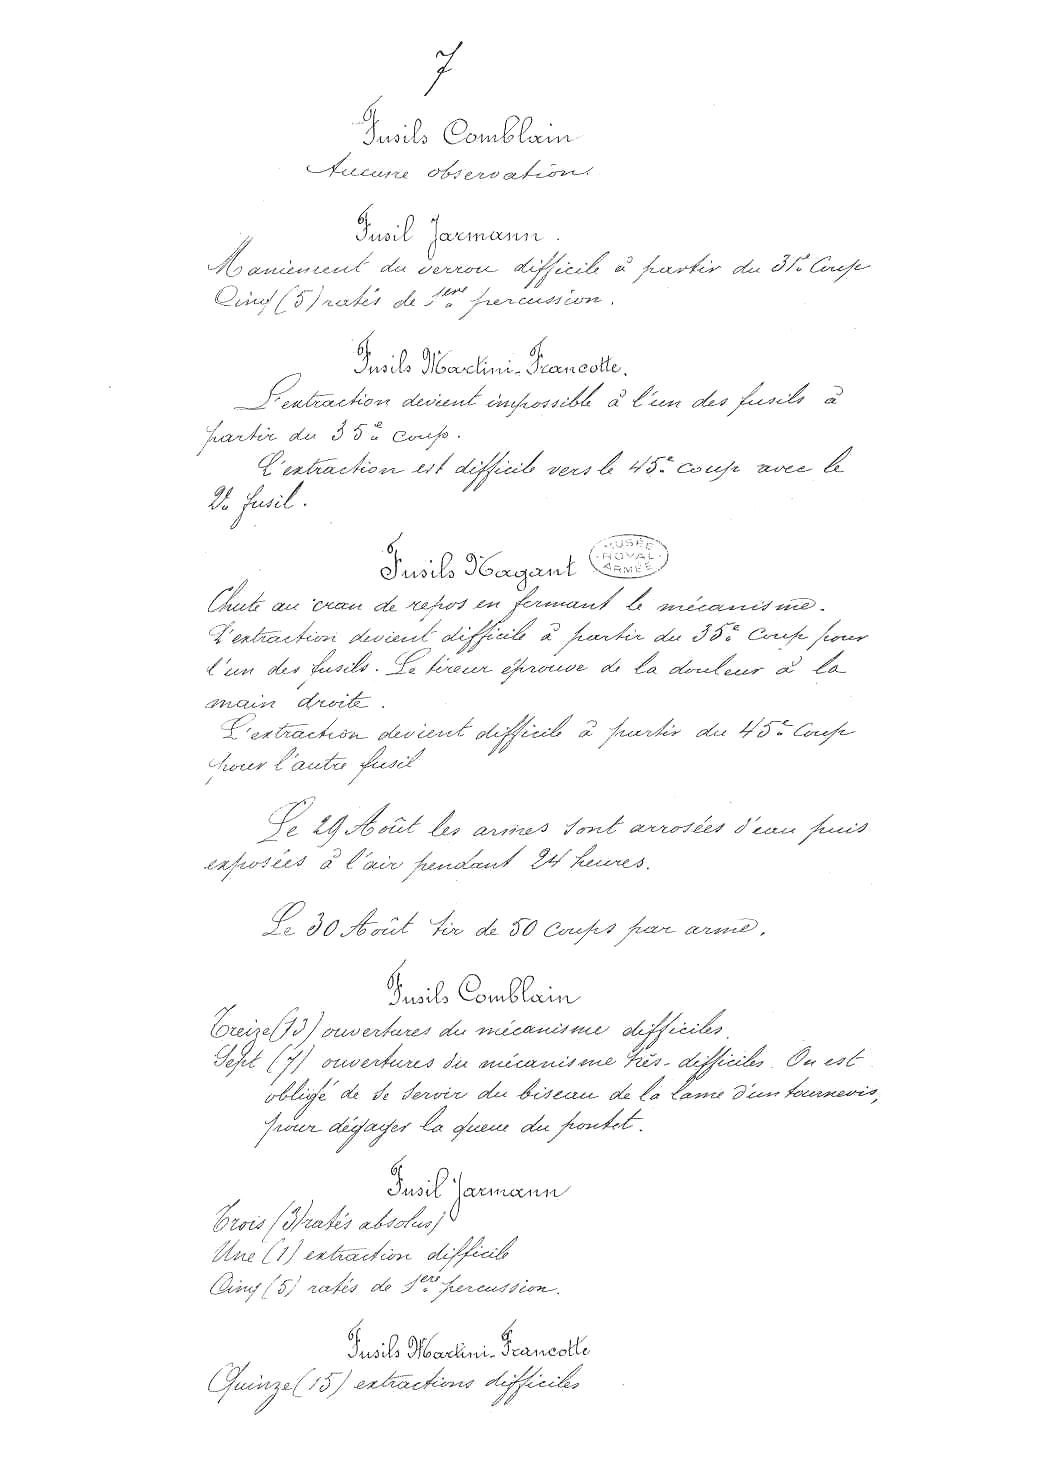 7
Fusils Comblain
Aucune observation
Fusil Jarmann.
Maniement du verrou difficile à partir du 31e Coup
Cinq (5) ratés de 1ère percussion.
Fusils Martini-Francotte.
L'extraction devient impossible à l'un des fusils à
partir du 35e coup.
L'extraction est difficile vers le 45e coup avec le
2e fusil.
Fusils Nagant
MUSÉE ROYAL ARMÉE
Chute au cran de repos en fermant le mécanisme.
L'extraction devient difficile à partir du 35e Coup pour
l'un des fusils. Le tireur éprouve de la douleur à la
main droite.
L'extraction devient difficile à partir du 45e Coup
pour l'autre fusil
Le 29 Août les armes sont arrosées d'eau puis
exposées à l'air pendant 24 heures.
Le 30 Août tir de 50 Coups par arme.
Fusils Comblain
Treize (13) ouvertures du mécanisme difficiles
Sept (7) ouvertures du mécanisme très-difficiles. On est
obligé de se servir du biseau de la lame d'un tournevis,
pour dégager la queue du pontet.
Fusil Jarmann
Trois (3) ratés absolus)
Une (1) extraction difficile
Cinq (5) ratés de 1ère percussion.
Fusils Martini-Francotte
Quinze (15) extractions difficiles